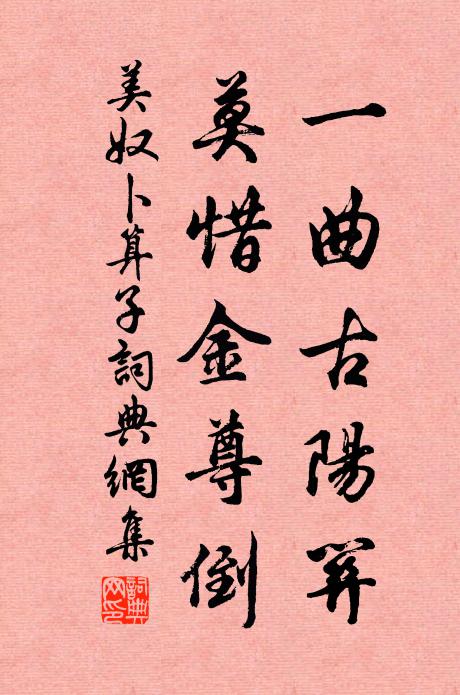 一曲古陽關
莫惜金尊倒
美奴卜算子詞典網集
詞典网印